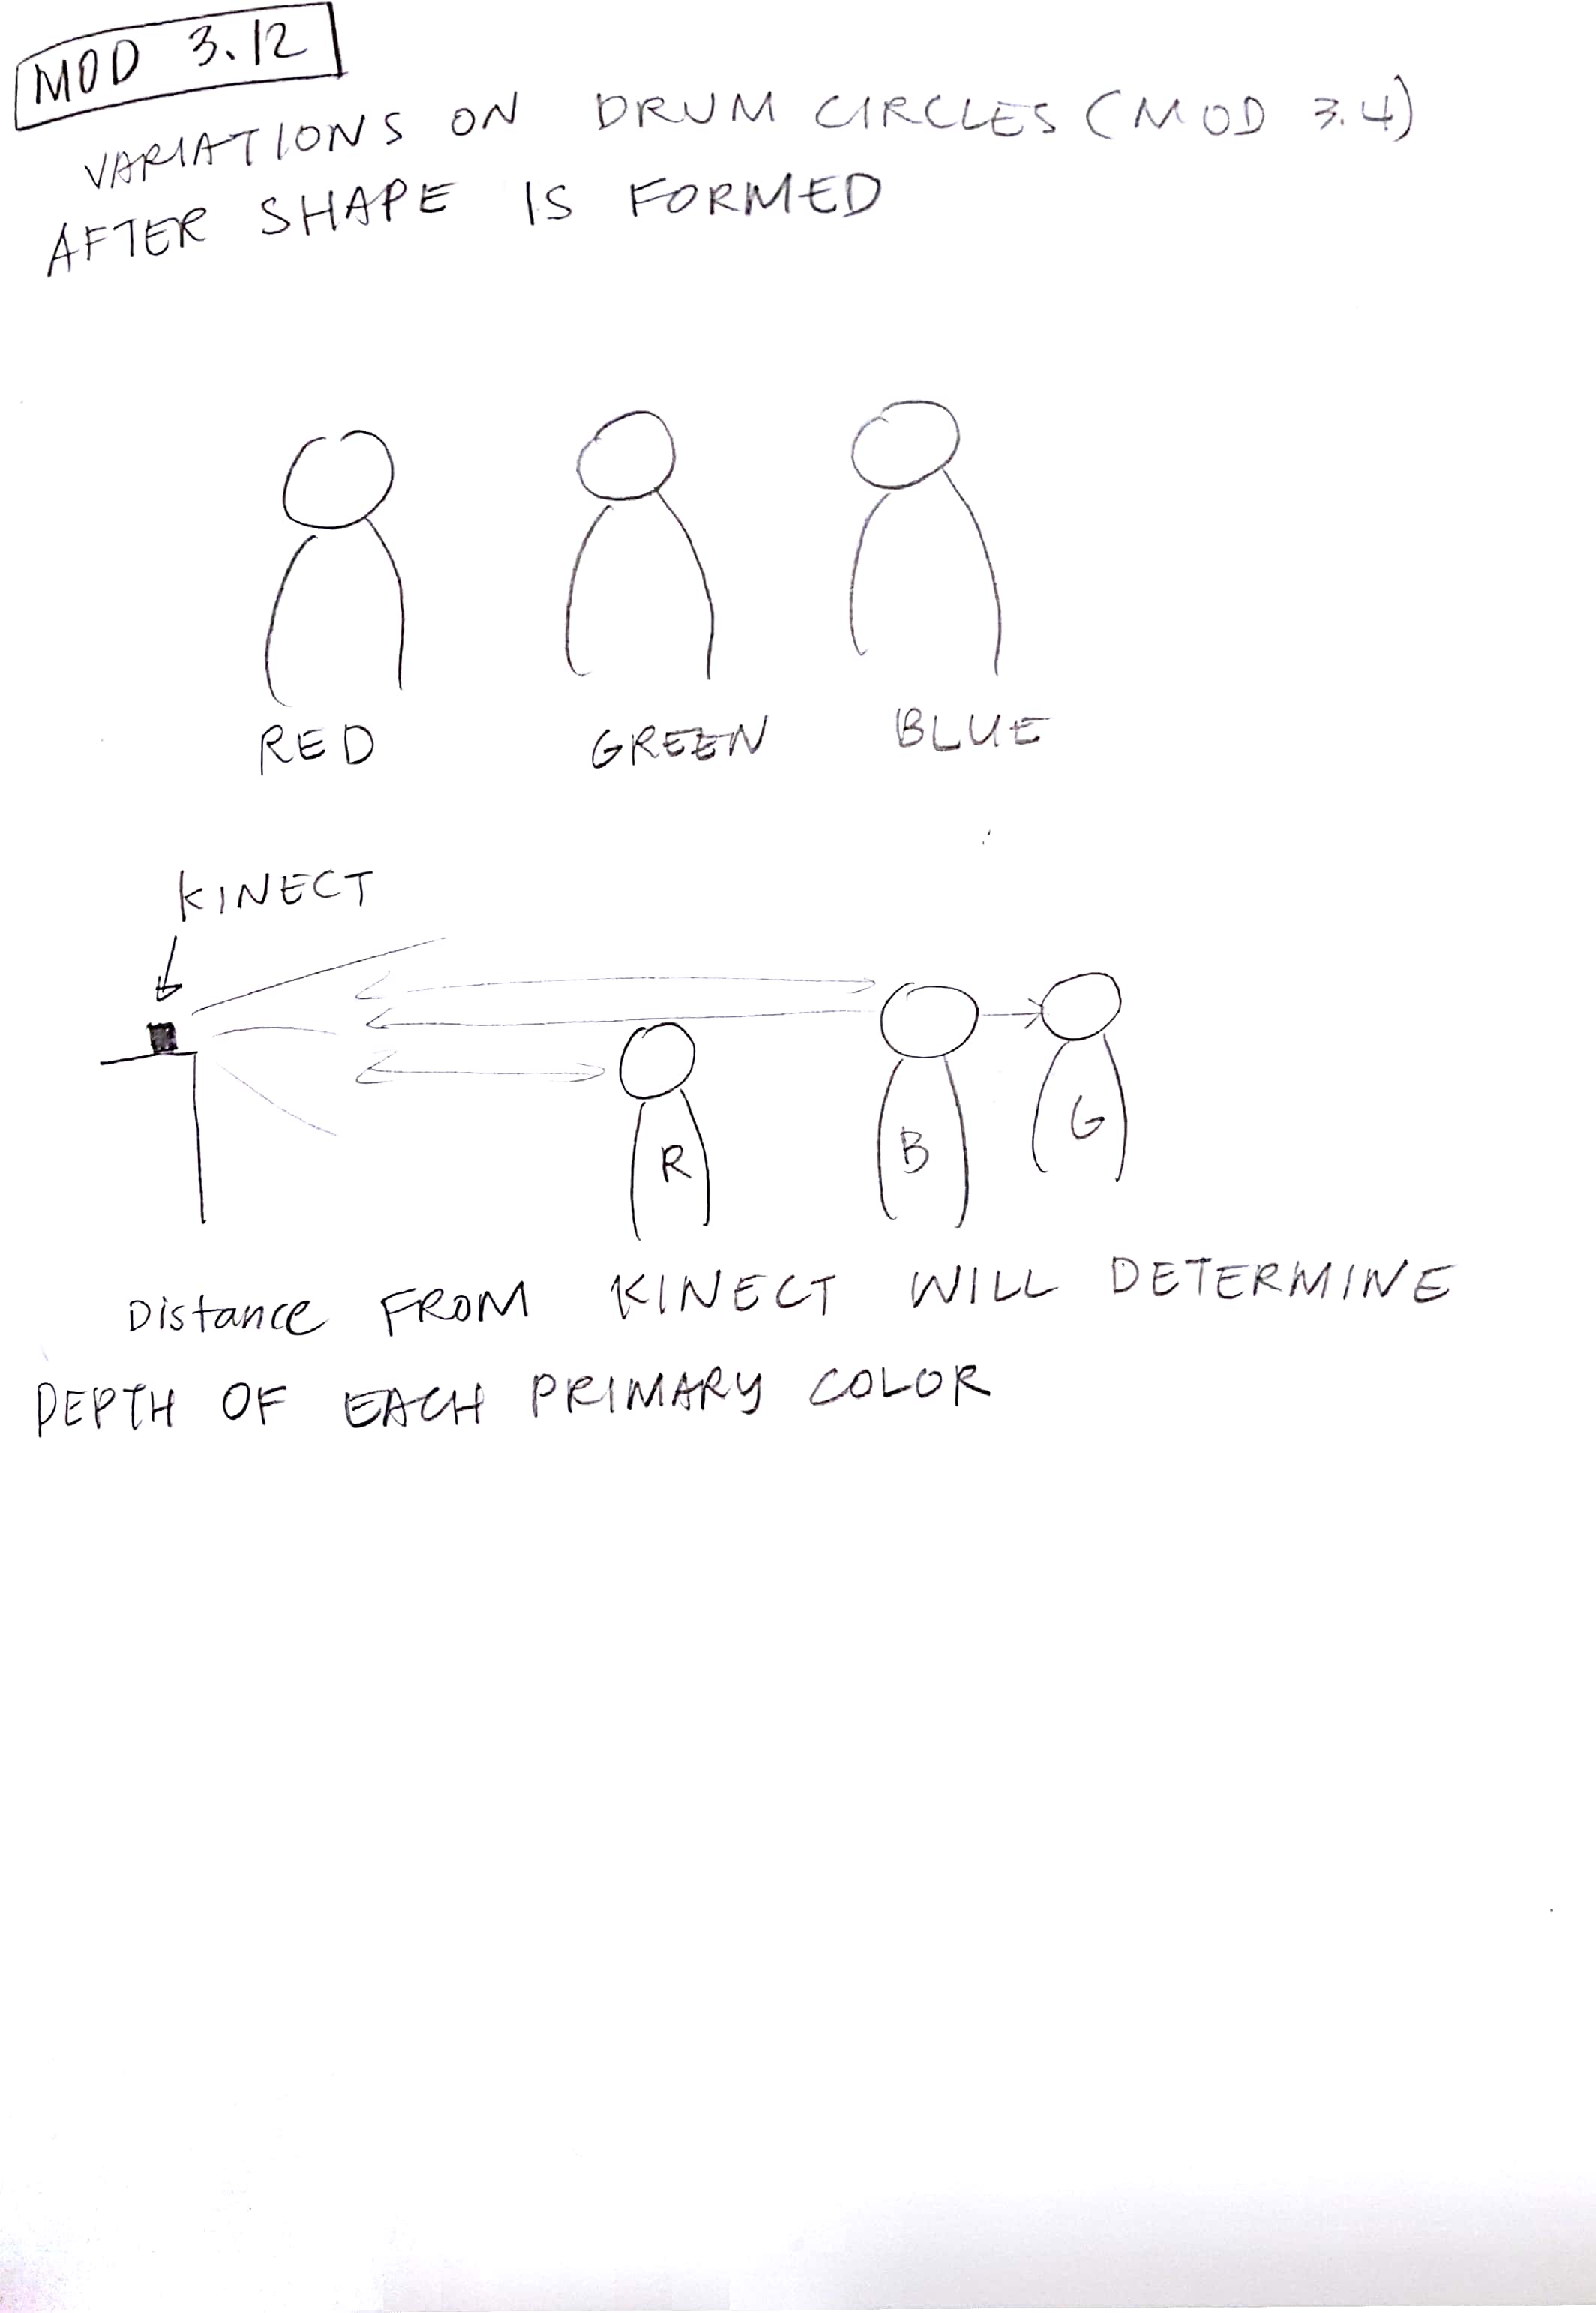 MOD 3.12
VARIATIONS ON DRUM CIRCLES (MOD 3.4)
AFTER SHAPE IS FORMED
RED GREEN BLUE
KINECT
R B G
Distance FROM KINECT WILL DETERMINE
DEPTH OF EACH PRIMARY COLOR